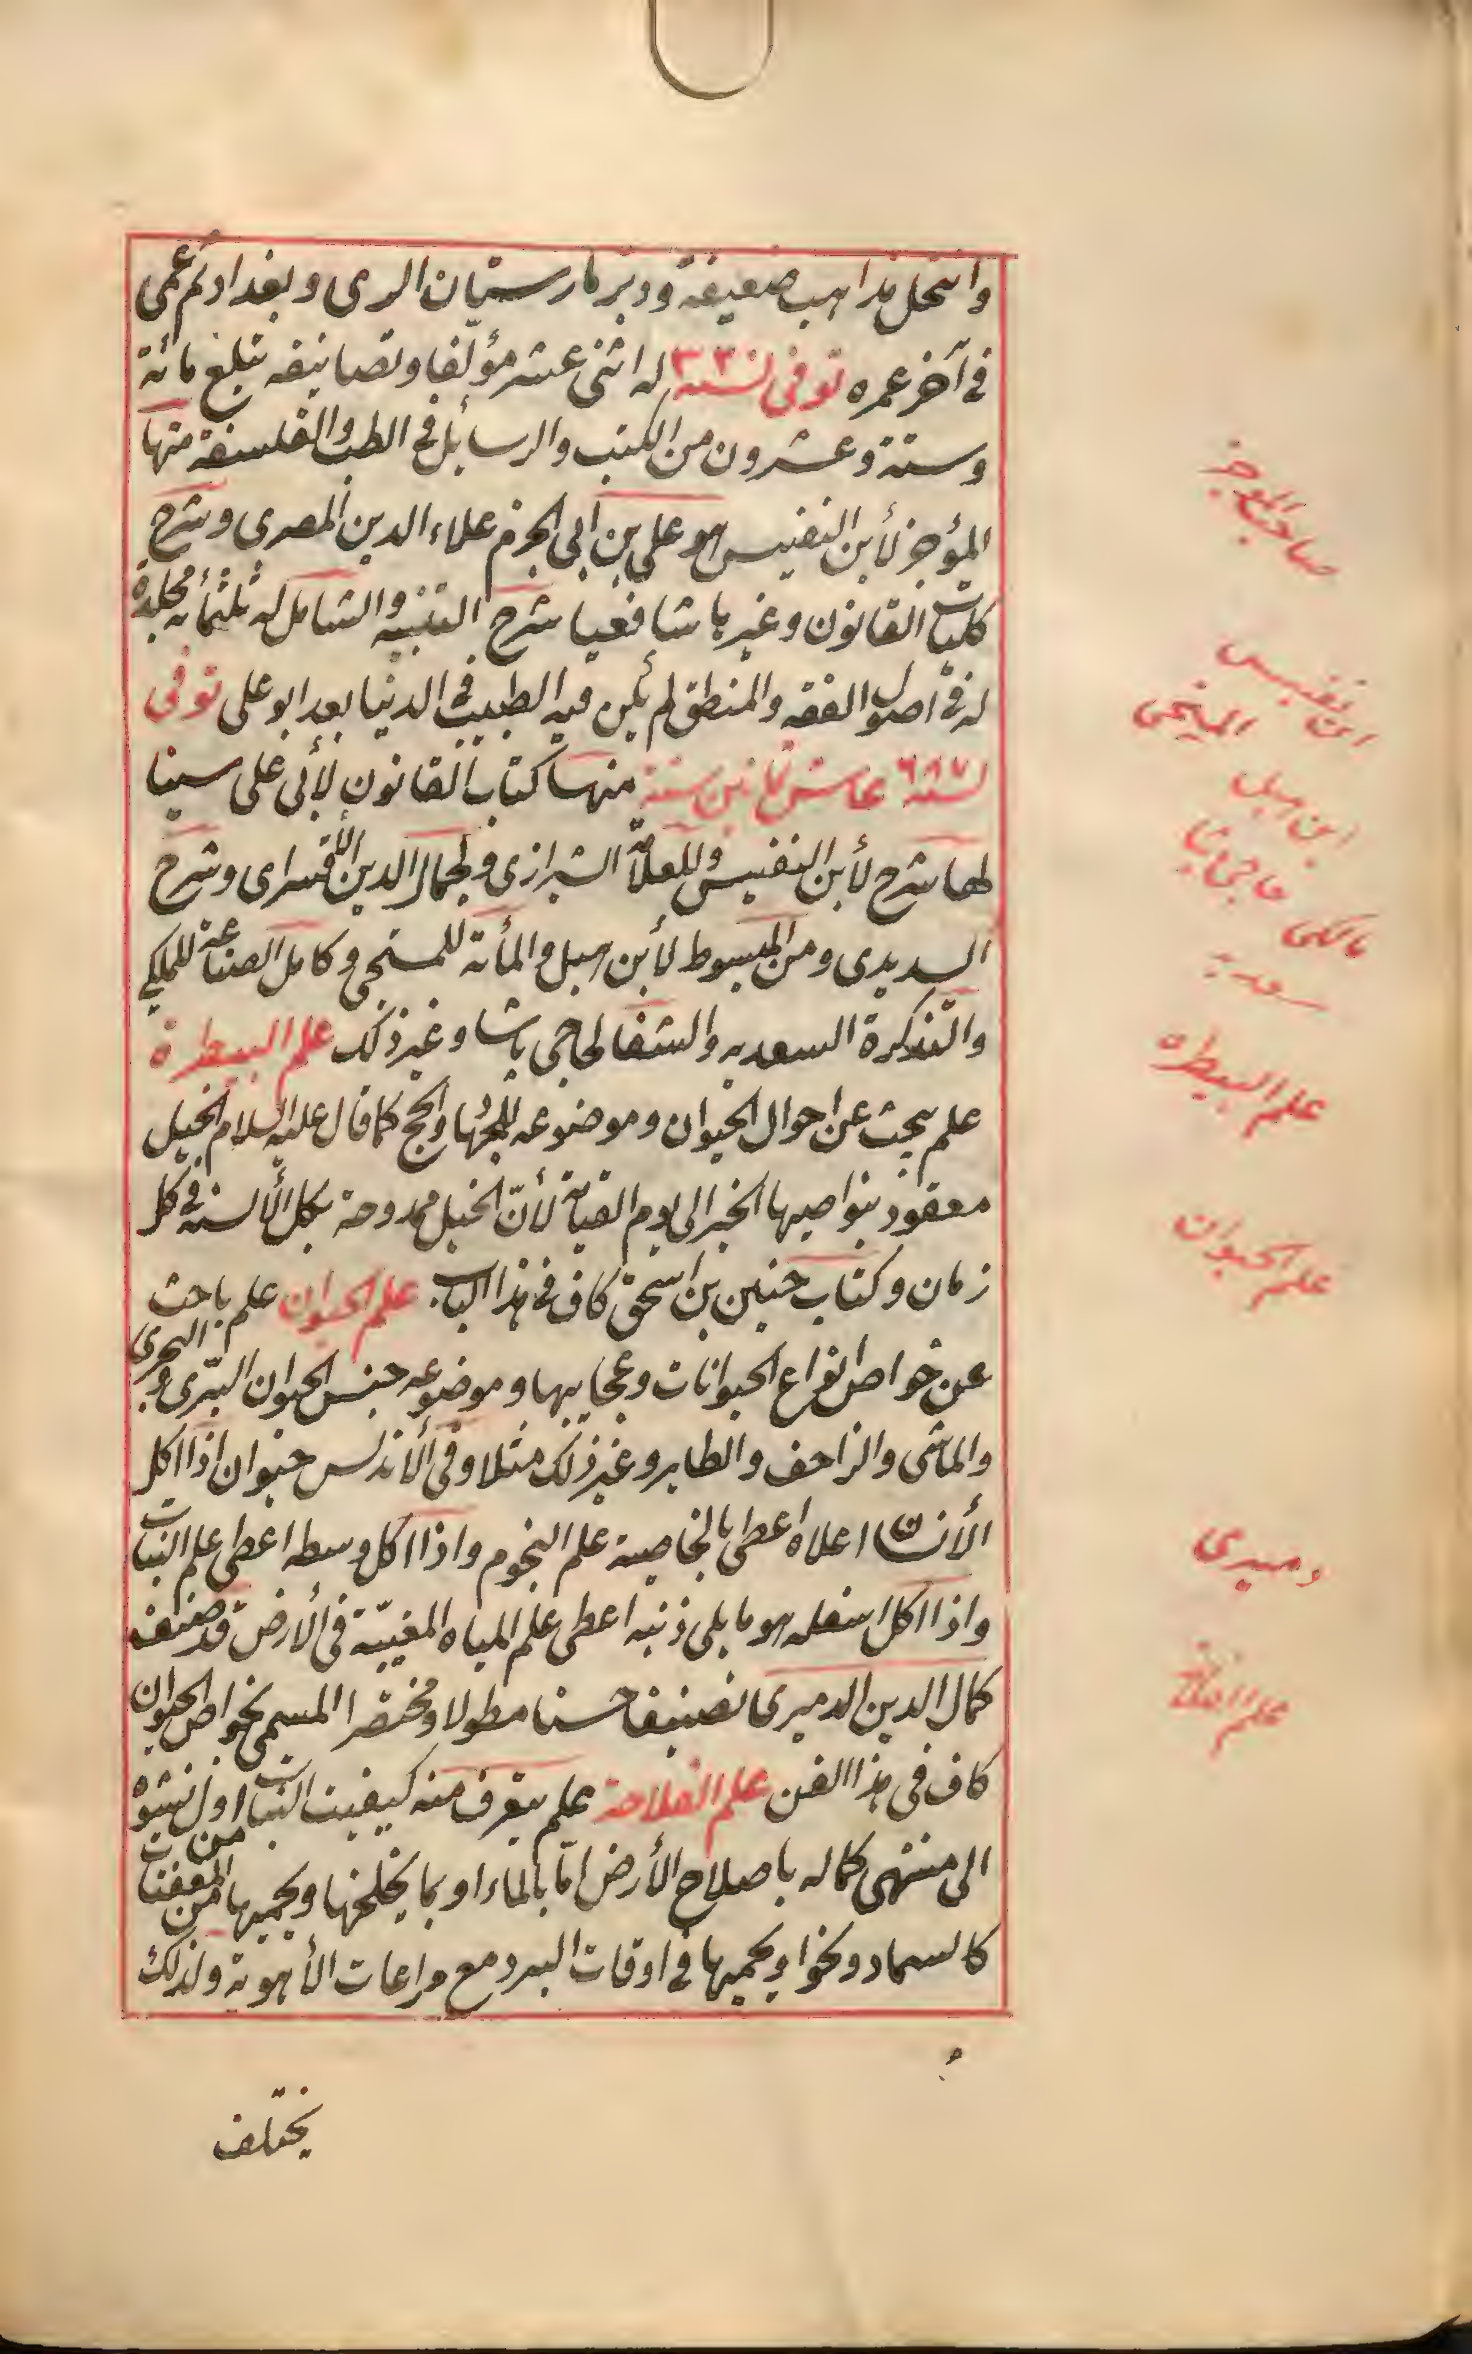 وانتحل مذاهب ضعيفة ودبّر مارستان الرى وبغداد ثم عمى
فى آخر عمره توفى سنة ٣٣ له اثنى عشر مؤلّفا وتصانيفه تبلغ مائة
وستة وعشرون من الكتب والرسايل فى الطب والفلسفة منها
المؤجز لأبن النفيس هو على بن ابى الحزم علاء الدين المصرى وشرح
كليات القانون وغيرها شافعيا شرح التنبيه والشامل له ثلثمائة مجلدة
له فى اصول الفقه والمنطق لم يكن فيه الطبيب فى الدنيا بعد ابو على توفى
لسنة ٦٨٧ عاش ثمانين سنة منها كتاب القانون لأبى على سينا
لها شرح لأبن النفيس وللعلامة الشيرازى ولجمال الدين الأقسراى وشرح
السديدى ومن المبسوط لأبن هبل والمأته للمسحى وكامل الصناعة للملكى
والتذكرة السعديه والشفا لحاجى باشا وغير ذلك علم البيطرة
علم يبحث عن احوال الحيوان وموضوعه للجهاد والحج كما قال عليه السلام الخيل
معقود بنواصيها الخير الى يوم القيامة لأنّ الخيل ممدوحة بكل الألسنه فى كل
زمان وكتاب حنين بن اسحق كاف فى هذا الباب علم الحيوان علم باحث
عن خواص انواع الحيوانات وعجايبها وموضوعه جنس الحيوان البرّى والبحرى
والماشى والزاحف والطاير وغير ذلك مثلا وفى الأندلس حيوان اذا اكل
الأنسان اعلاه اعطى بالخاصية علم النجوم واذا اكل وسطه اعطى علم النبات
واذا اكل اسفله هو ما يلى ذنبه اعطى علم المياه المغيبّة فى الأرض قد صنف
كمال الدين الدميرى تصنيفا حسنا مطولا ومختصرا المسمى بخواص الحيوان
كاف فى هذا الفن علم الفلاحة علم يتعرف منه كيفيت النبات من اول نشوه
الى منتهى كماله باصلاح الأرض امّا بالماء او بما يخلخلها ويحميها من المعفنات
كالسماد ونحوا ويحميها فى اوقات البرد مع مراعات الأهوية ولذلك
يختلف
صاحب الموجز
ابن نفيس
المسحى
ابن هبل
حاجى پاشا
مالكى
سعديه
علم البيطره
علم الحيوان
دميرى
علم الفلاحة